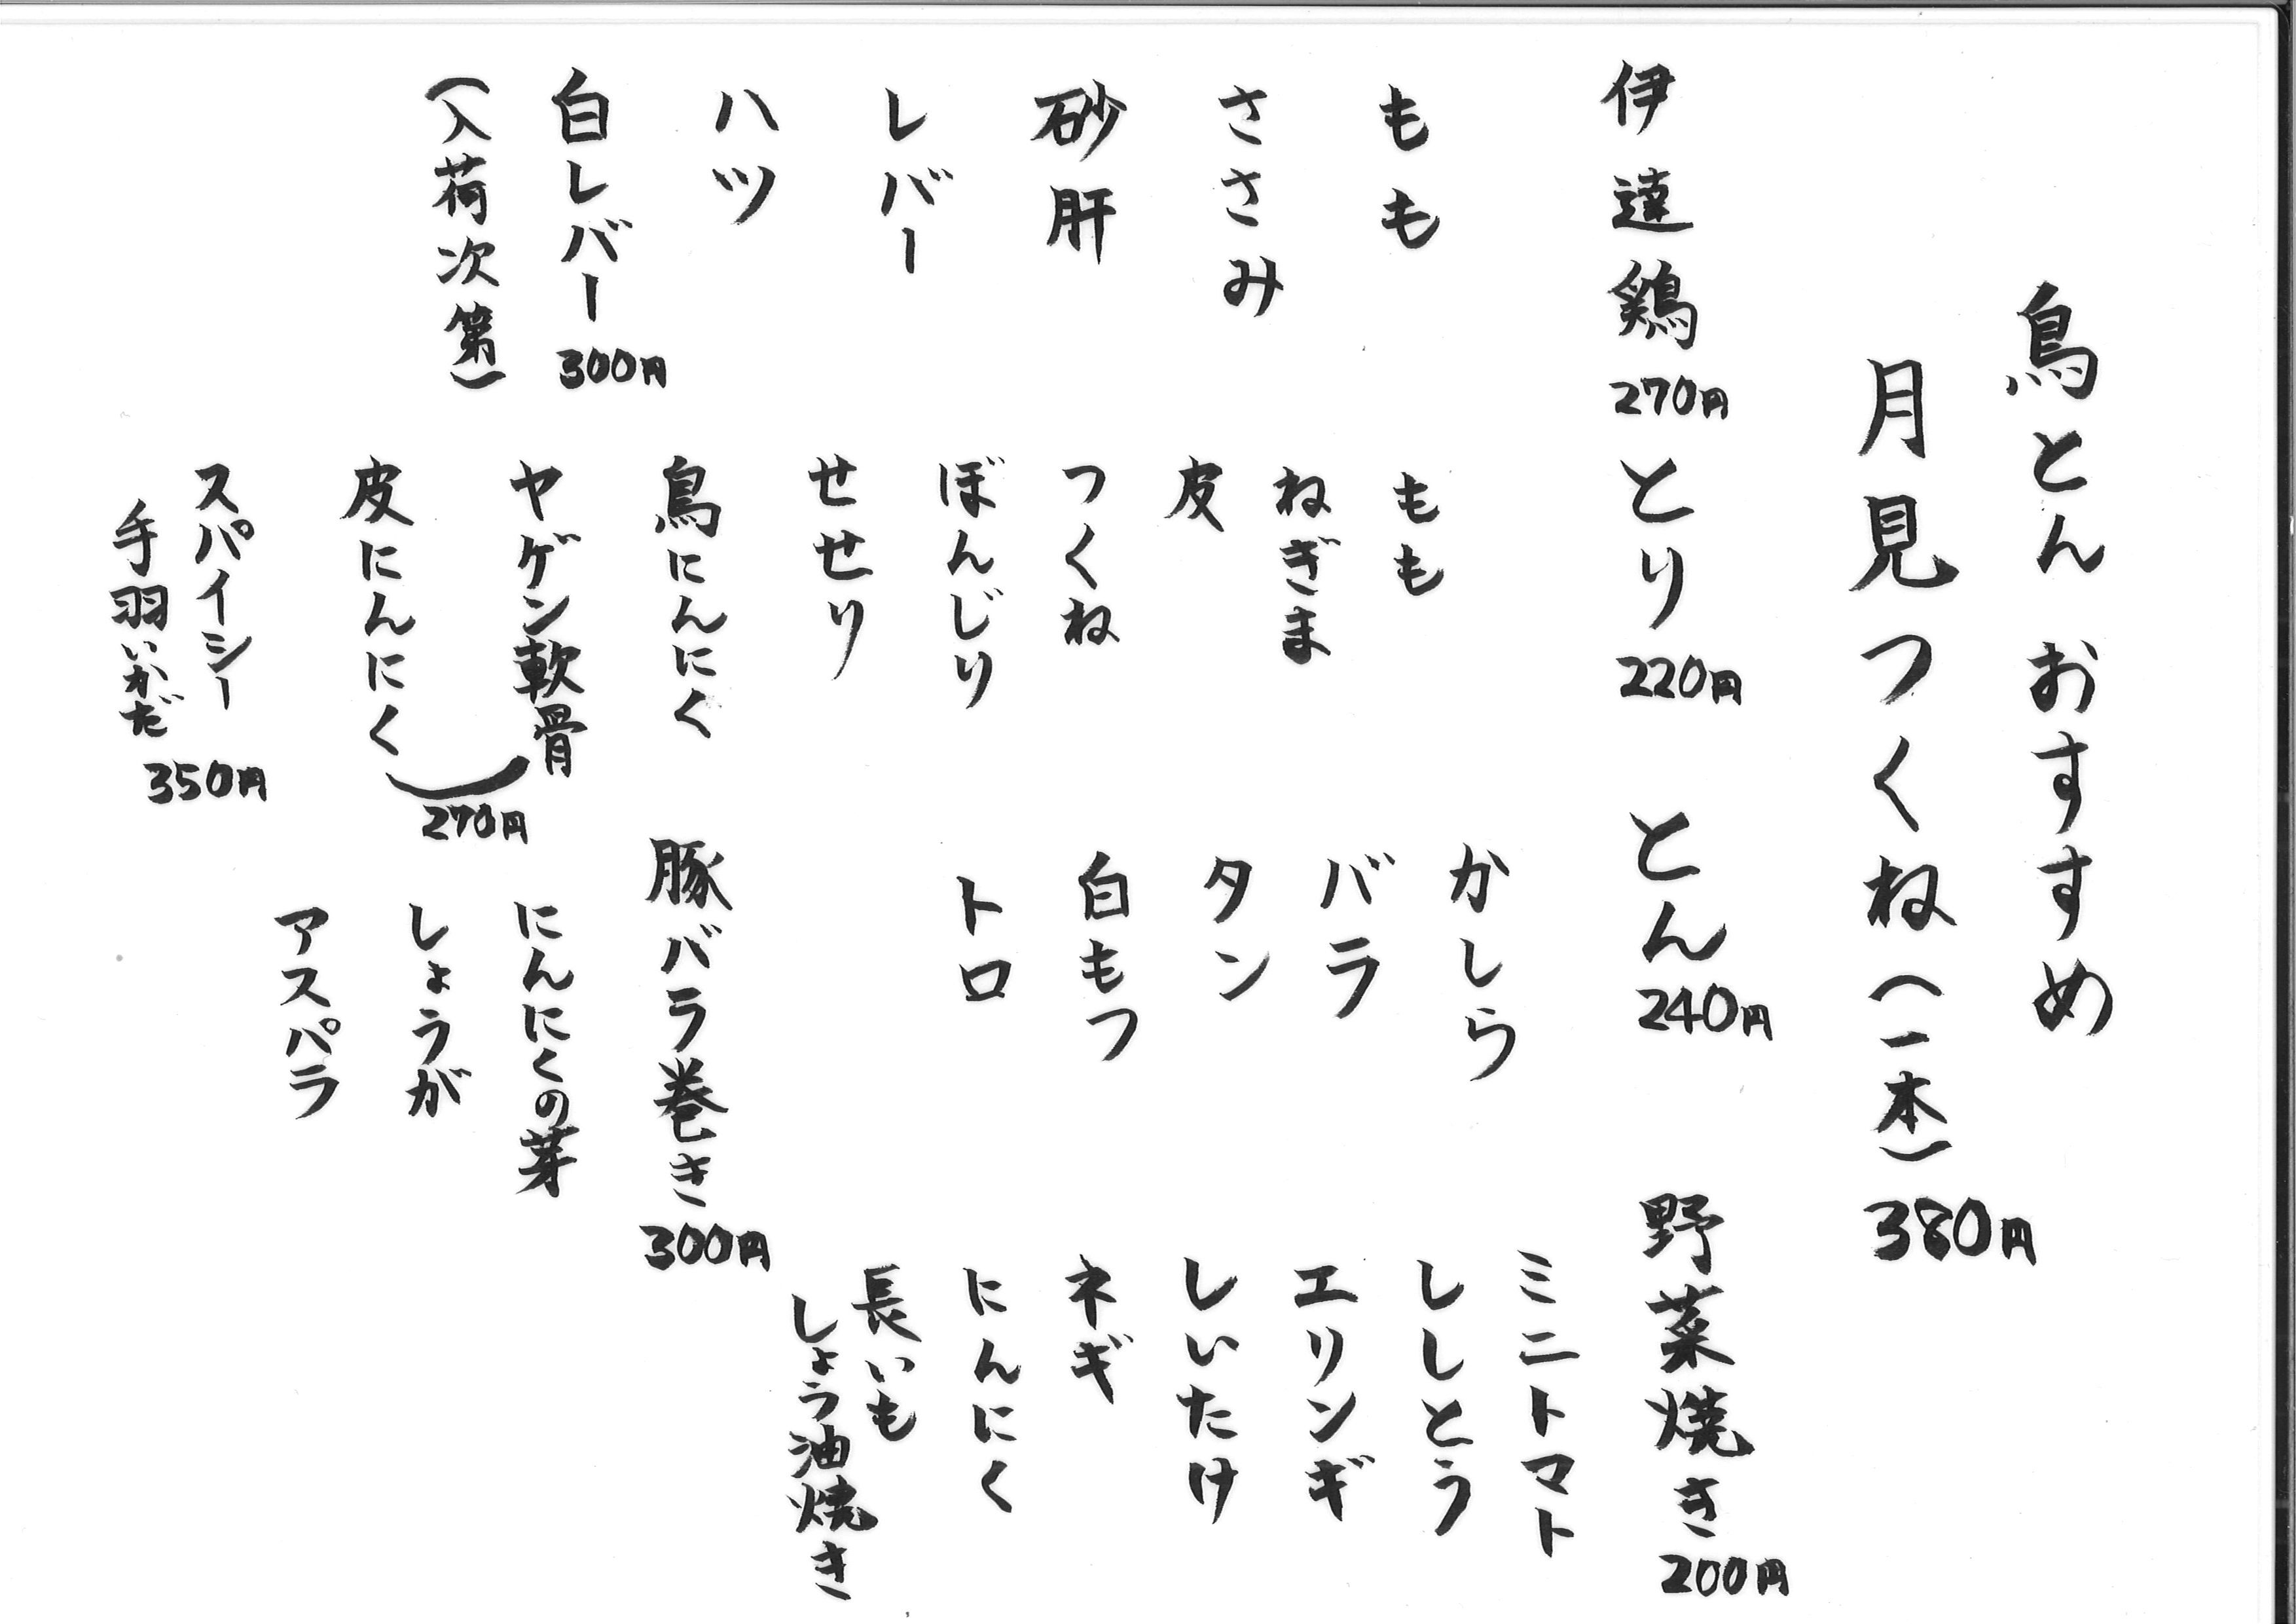 鳥とん おすすめ
月見つくね(一本)380円
伊達鶏 270円
もも
ささみ
砂肝
レバー
ハツ
白レバー 300円
(入荷次第)
とり 220円
もも
ねぎま
皮
つくね
ぼんじり
せせり
鳥にんにく
ヤゲン軟骨
皮にんにく
270円
スパイシー
手羽いかだ 350円
とん 240円
かしら
バラ
タン
白もつ
トロ
豚バラ巻き 300円
にんにくの芽
しょうが
アスパラ
野菜焼き 200円
ミニトマト
ししとう
エリンギ
しいたけ
ネギ
にんにく
長いも
しょう油焼き